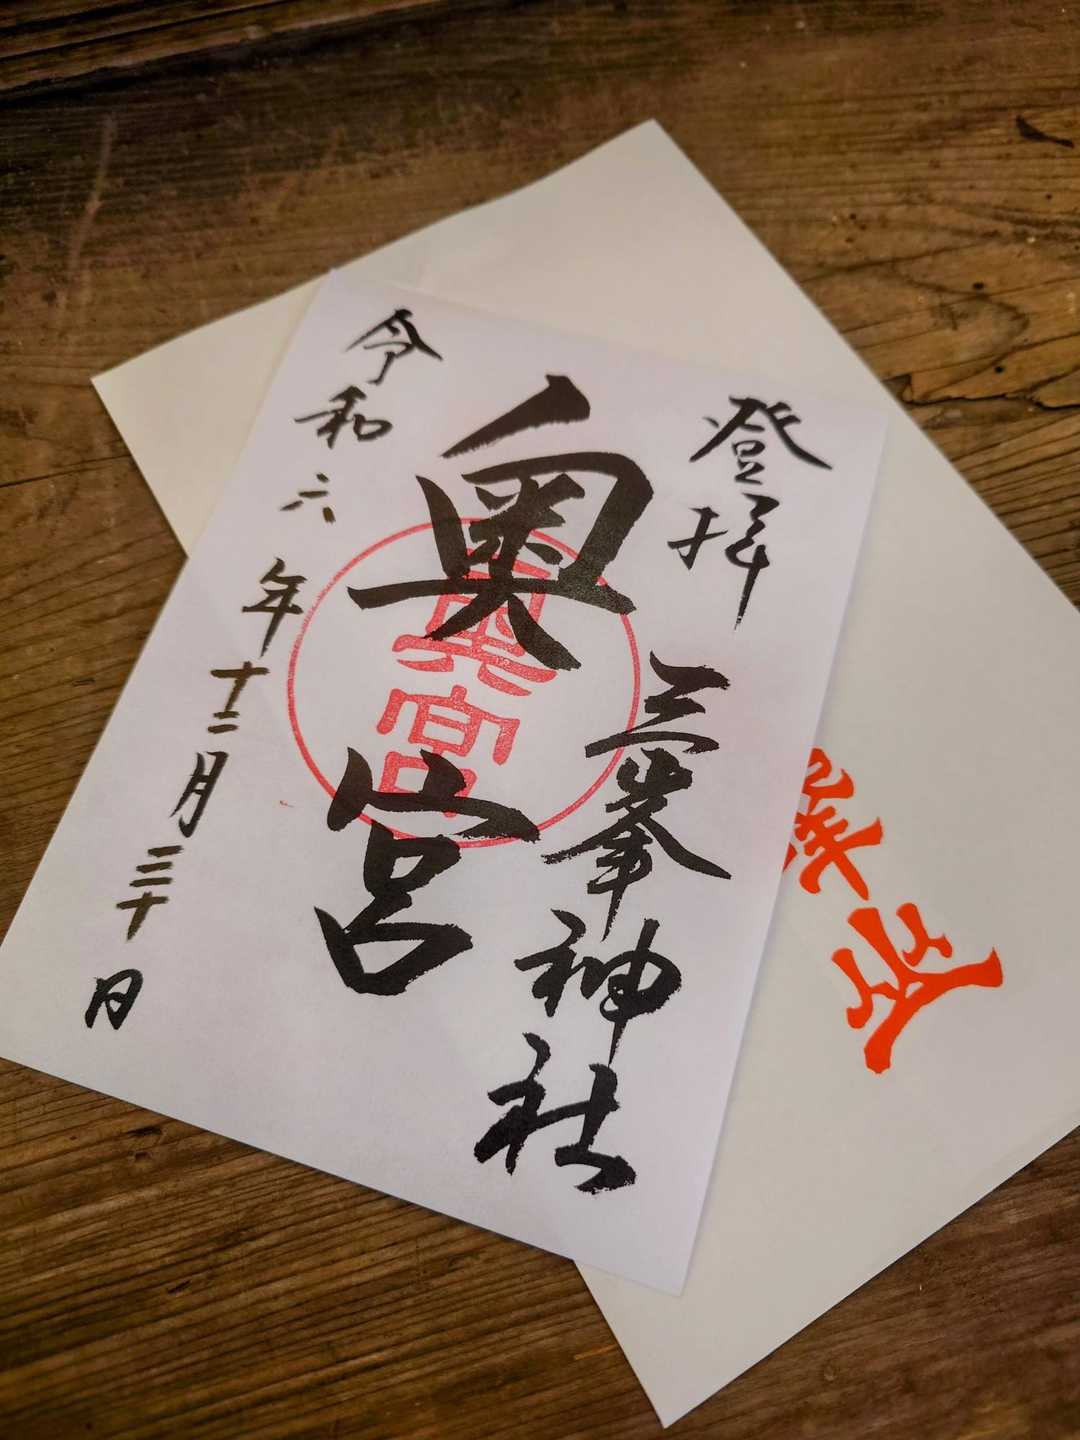 登拝
三峯神社
奥宮
奥宮
令和六年十二月三十日